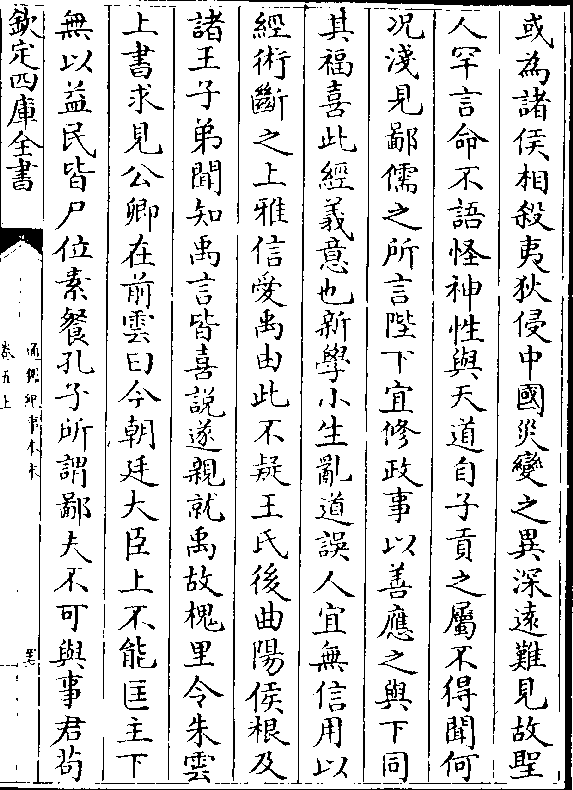 或為諸侯相殺夷狄侵中國災變之異深遠難見故聖
人罕言命不語怪神性與天道自子貢之屬不得聞何
况淺見鄙儒之所言陛下宜修政事以善應之與下同
其福喜此經義意也新學小生亂道誤人宜無信用以
經術斷之上雅信愛禹由此不疑王氏後曲陽侯根及
諸王子弟聞知禹言皆喜説遂親就禹故槐里令朱雲
上書求見公卿在前雲曰今朝廷大臣上不能匡主下
無以益民皆尸位素餐孔子所謂鄙夫不可與事君茍
欽定四庫全書
通鑑紀事本末
卷五上